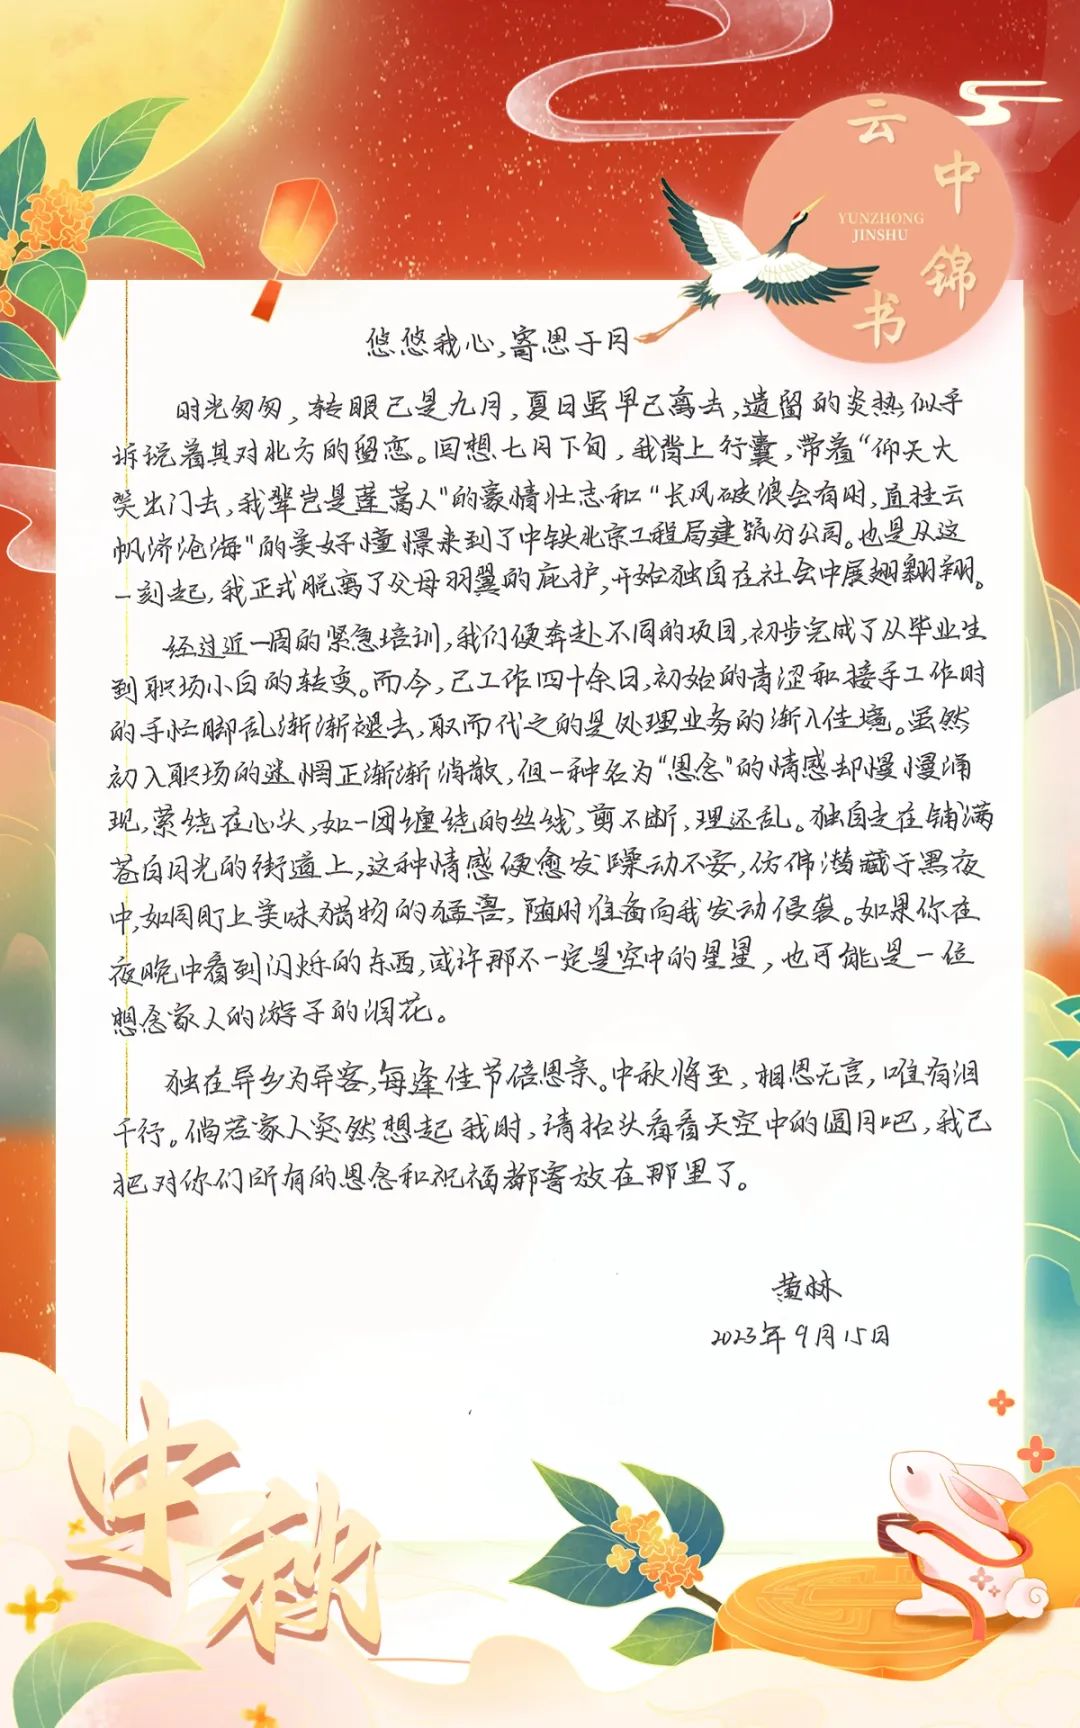 云中锦书
YUNZHONG
JINSHU
悠悠我心,寄思于月
时光匆匆,转眼已是九月,夏日虽早已离去,遗留的炎热似乎
诉说着其对北方的留恋。回想七月下旬,我背上行囊,带着“仰天大
笑出门去,我辈岂是蓬蒿人”的豪情壮志和“长风破浪会有时,直挂云
帆济沧海”的美好憧憬来到了中铁北京工程局建筑分公司。也是从这
一刻起,我正式脱离了父母羽翼的庇护,开始独自在社会中展翅翱翔。
经过近一周的紧急培训,我们便奔赴不同的项目,初步完成了从毕业生
到职场小白的转变。而今,已工作四十余日,初始的青涩和接手工作时
的手忙脚乱渐渐褪去,取而代之的是处理业务的渐入佳境。虽然
初入职场的迷惘正渐渐消散,但一种名为“思念”的情感却慢慢涌
现,萦绕在心头,如一团缠绕的丝线,剪不断,理还乱。独自走在铺满
苍白月光的街道上,这种情感便愈发躁动不安,仿佛潜藏于黑夜
中,如同盯上美味猎物的猛兽,随时准备向我发动侵袭。如果你在
夜晚中看到闪烁的东西,或许那不一定是空中的星星,也可能是一位
想念家人的游子的泪花。
独在异乡为异客,每逢佳节倍思亲。中秋将至,相思无言,唯有泪
千行。倘若家人突然想起我时,请抬头看看天空中的圆月吧,我已
把对你们所有的思念和祝福都寄放在那里了。
黄林
2023年9月15日
中秋